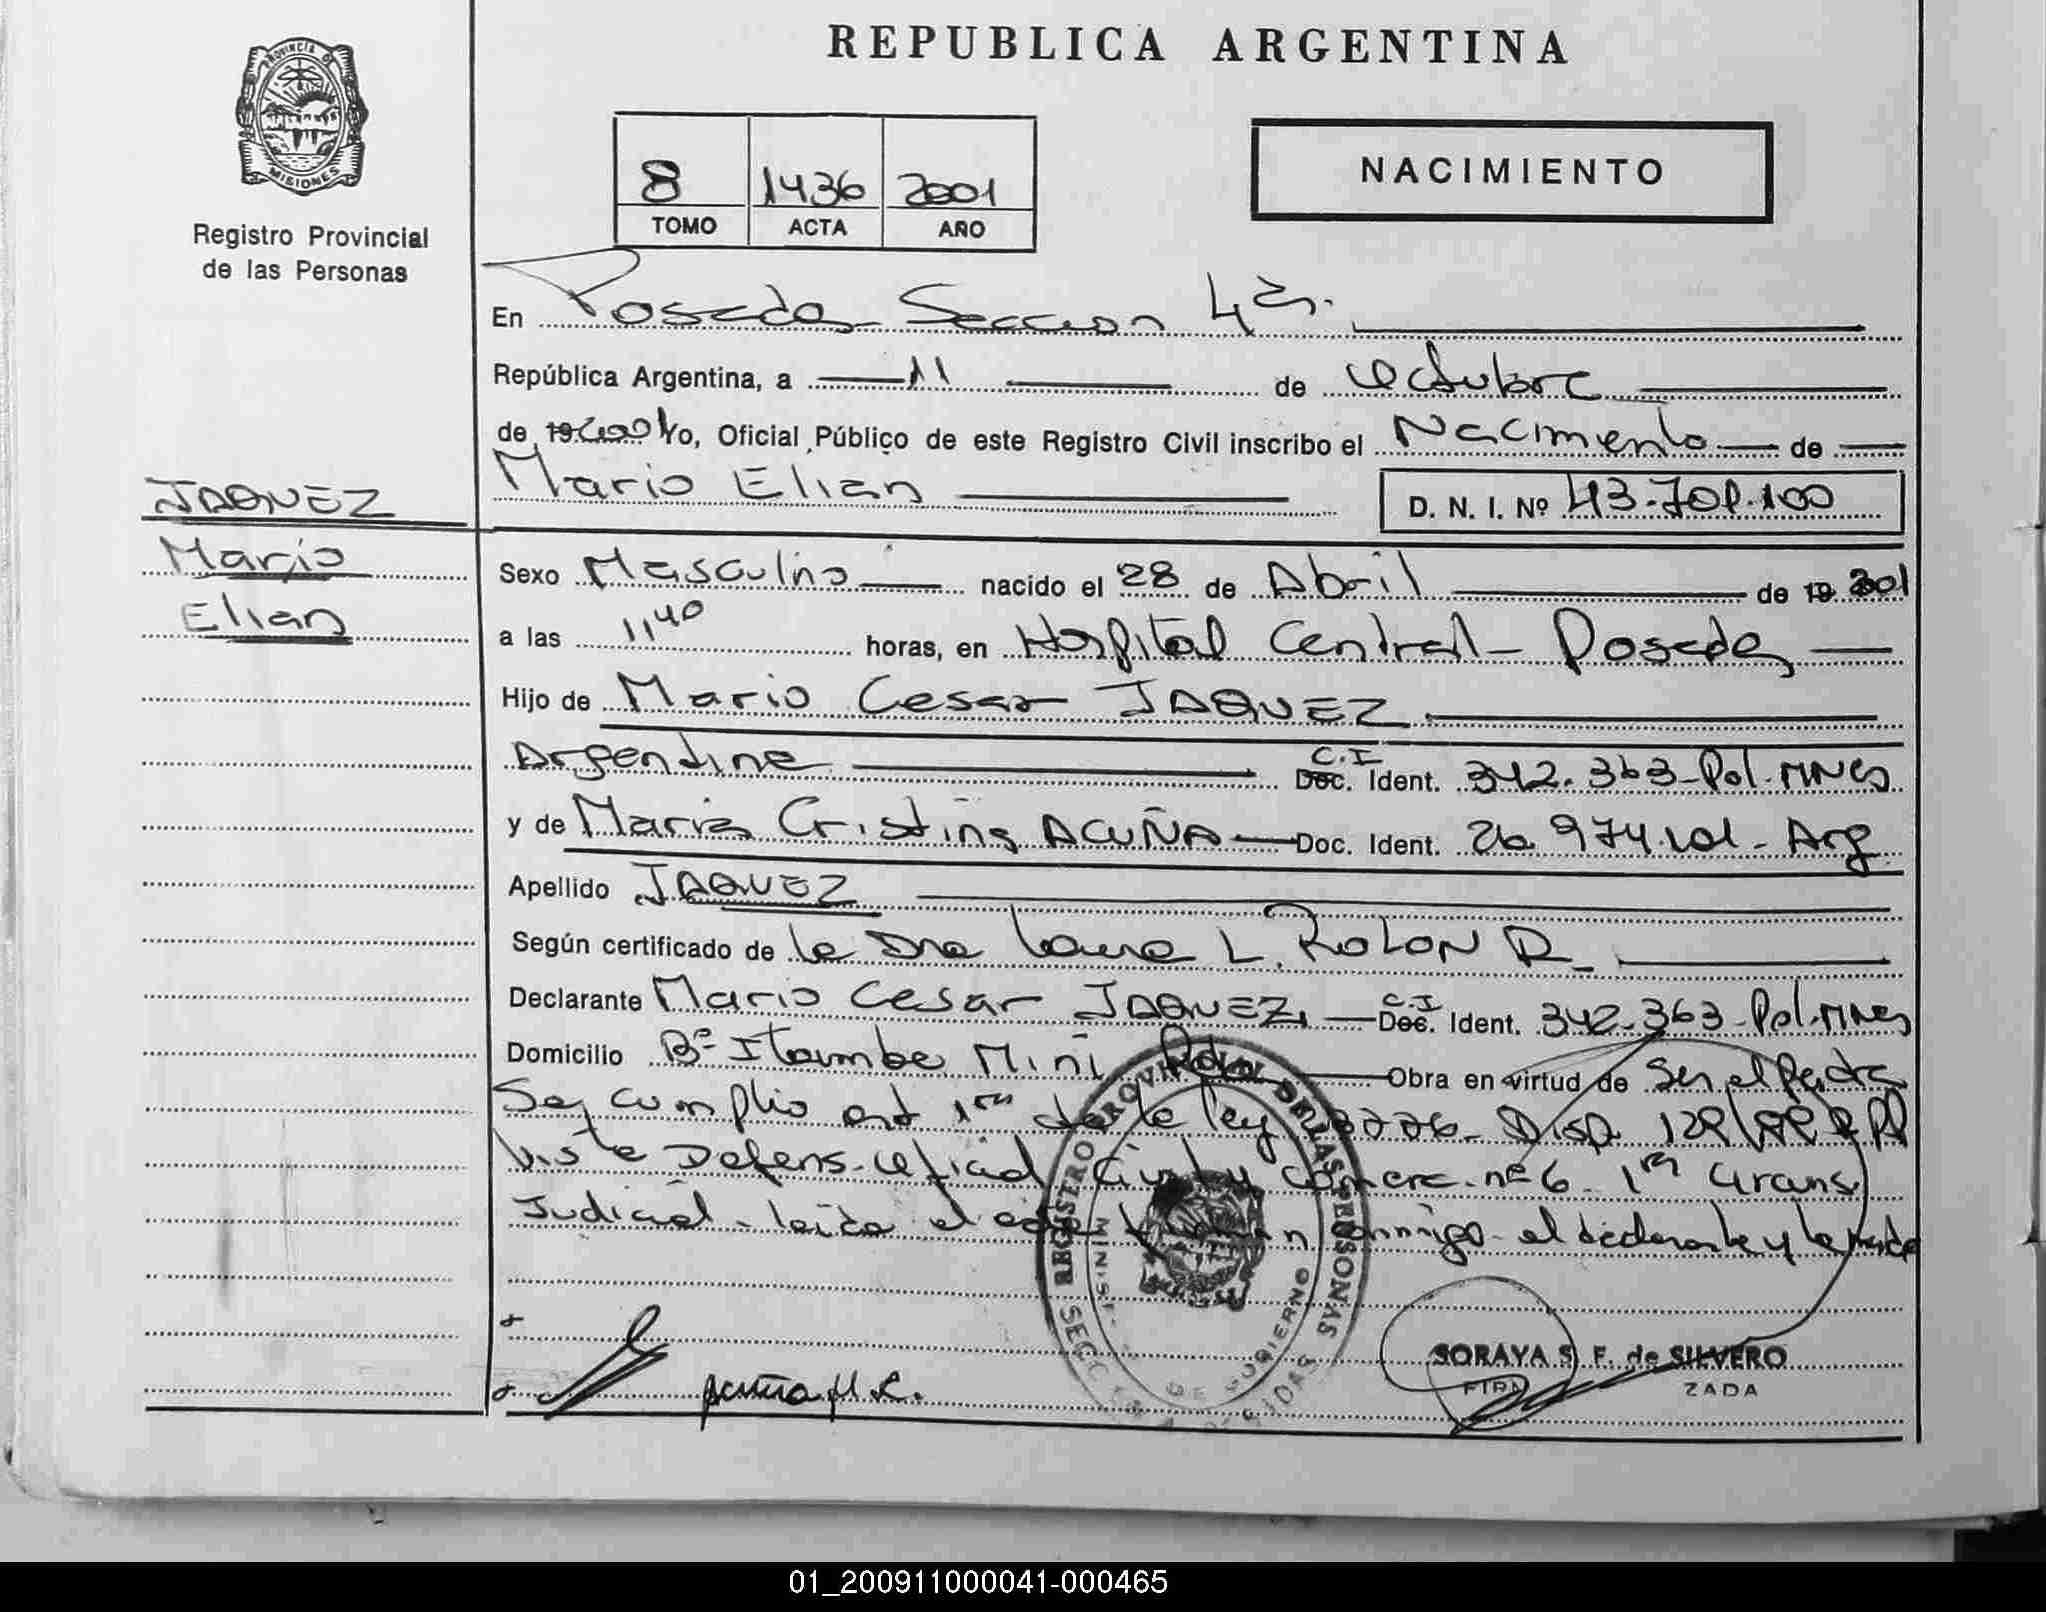 REPUBLICA ARGENTINA
PROVINCIA DE MISIONES
Registro Provincial
de las Personas
8 1436 2001
TOMO ACTA AÑO
NACIMIENTO
En Posadas Sección 4ta.
República Argentina, a 11 de octubre
de 19 2001 Yo, Oficial Público de este Registro Civil inscribo el Nacimiento de
Mario Elian D. N. I. Nº 43.701.100
JAQUEZ
Mario
Elian
Sexo Masculino nacido el 28 de Abril de 19 2001
a las 11,40 horas, en Hospital Central - Posadas
Hijo de Mario Cesar JAQUEZ
Argentina C.I Doc. Ident. 342.363-Pol.MNES
y de Maria Cristina ACUÑA Doc. Ident. 26.974.101 - Arg
Apellido JAQUEZ
Según certificado de la Dra Laura L. ROLON R.
Declarante Mario Cesar JAQUEZ C.I Doc. Ident. 342.363-Pol.MNES
Domicilio Bº Itaembe Mini Pdas Obra en virtud de Ser el Padre
Se cumplio art 1ro de la ley Disp.
vista Defens. oficial Civil y comerc. nº 6 1ra Circuns
Judicial - leida el acta firman conmigo el declarante y la madre
REGISTRO PROVINCIAL DE LAS PERSONAS
DE GOBIERNO
Acuña M. C.
SORAYA S. F. de SILVERO
ZADA
01_200911000041-000465